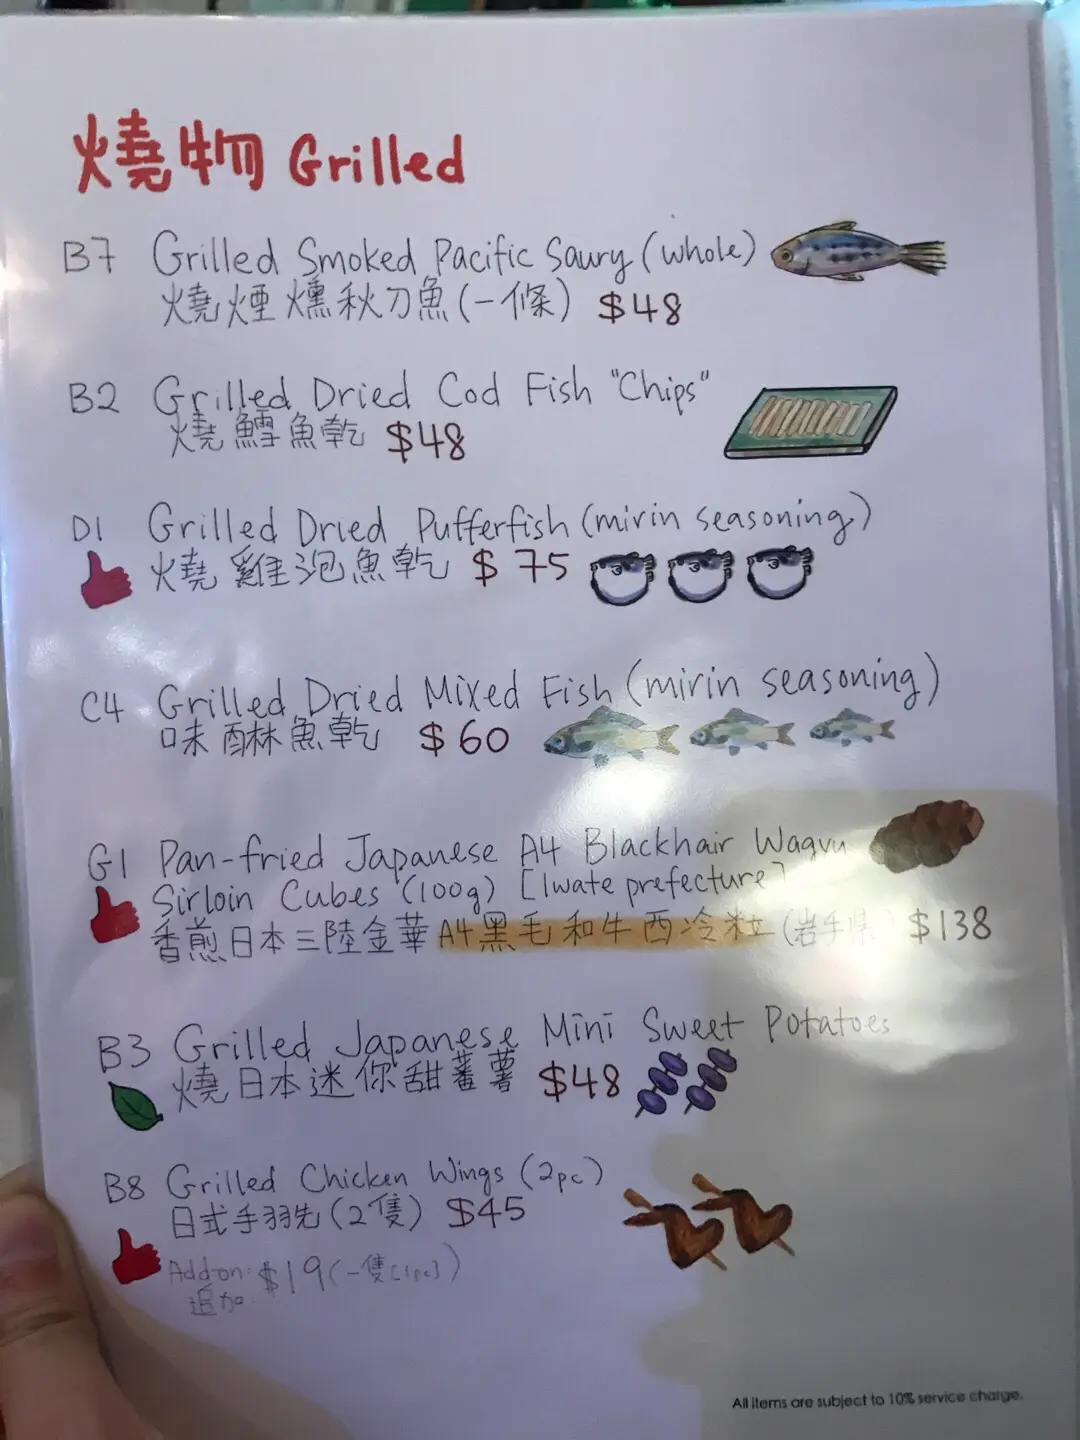 燒物 Grilled
B7 Grilled Smoked Pacific Saury (whole)
燒煙燻秋刀魚(一條) $48
B2 Grilled Dried Cod Fish "Chips"
燒鱈魚乾 $48
D1 Grilled Dried Pufferfish (mirin seasoning)
燒雞泡魚乾 $75
C4 Grilled Dried Mixed Fish (mirin seasoning)
味醂魚乾 $60
G1 Pan-fried Japanese A4 Blackhair Wagyu
Sirloin Cubes (100g) [Iwate prefecture]
香煎日本三陸金華A4黑毛和牛西冷粒 (岩手県) $138
B3 Grilled Japanese Mini Sweet Potatoes
燒日本迷你甜蕃薯 $48
B8 Grilled Chicken Wings (2pc)
日式手羽先(2隻) $45
Add-on: $19(一隻[1pc])
追加:
All items are subject to 10% service charge.